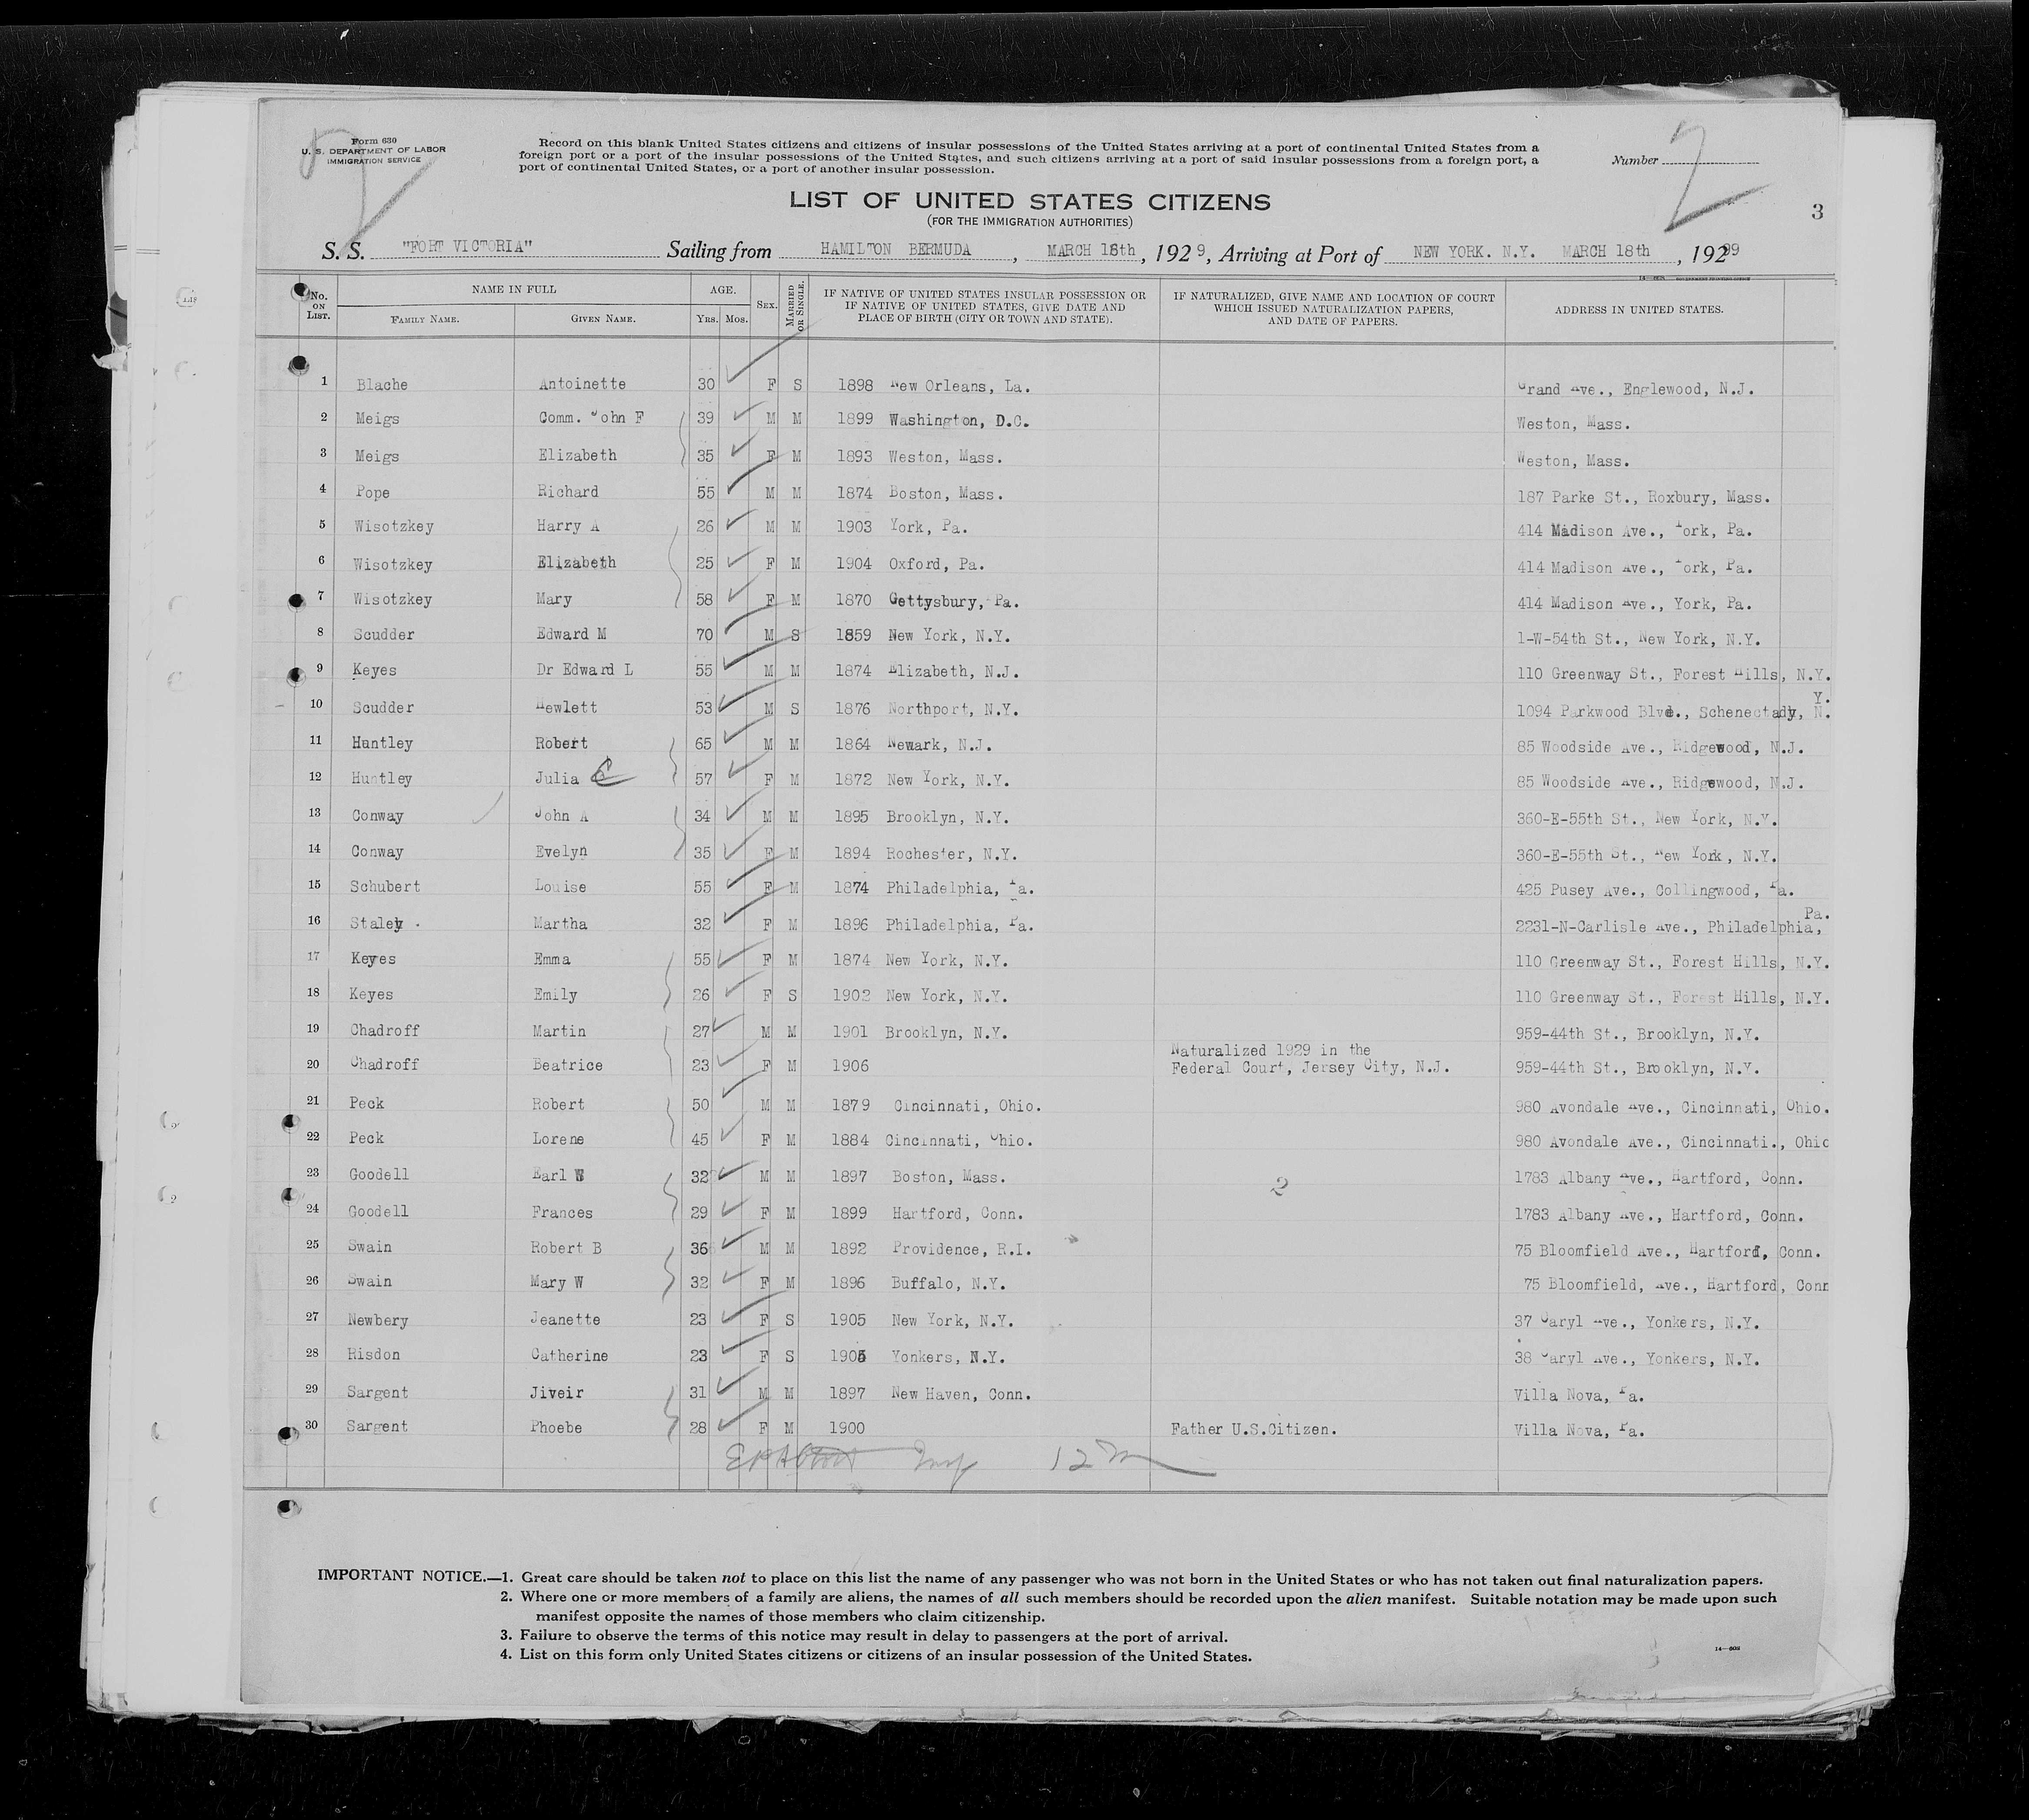 Form 630
U. S. DEPARTMENT OF LABOR
IMMIGRATION SERVICE
Record on this blank United States citizens and citizens of insular possessions of the United States arriving at a port of continental United States from a
foreign port or a port of the insular possessions of the United States, and such citizens arriving at a port of said insular possessions from a foreign port, a
port of continental United States, or a port of another insular possession.
Number
2
3
LIST OF UNITED STATES CITIZENS
(FOR THE IMMIGRATION AUTHORITIES)
S. S. "FORT VICTORIA" Sailing from HAMILTON BERMUDA, MARCH 18th, 1929, Arriving at Port of NEW YORK. N.Y. MARCH 18th, 19299
No. ON LIST. NAME IN FULL FAMILY NAME. GIVEN NAME. AGE. Yrs. Mos. SEX. MARRIED OR SINGLE. IF NATIVE OF UNITED STATES INSULAR POSSESSION OR IF NATIVE OF UNITED STATES, GIVE DATE AND PLACE OF BIRTH (CITY OR TOWN AND STATE). IF NATURALIZED, GIVE NAME AND LOCATION OF COURT WHICH ISSUED NATURALIZATION PAPERS, AND DATE OF PAPERS. ADDRESS IN UNITED STATES.
1 Blache Antoinette 30 F S 1898 New Orleans, La. Grand Ave., Englewood, N.J.
2 Meigs Comm. John F 39 M M 1899 Washington, D.C. Weston, Mass.
3 Meigs Elizabeth 35 F M 1893 Weston, Mass. Weston, Mass.
4 Pope Richard 55 M M 1874 Boston, Mass. 187 Parke St., Roxbury, Mass.
5 Wisotzkey Harry A 26 M M 1903 York, Pa. 414 Madison Ave., York, Pa.
6 Wisotzkey Elizabeth 25 F M 1904 Oxford, Pa. 414 Madison Ave., York, Pa.
7 Wisotzkey Mary 58 F M 1870 Gettysbury, Pa. 414 Madison Ave., York, Pa.
8 Scudder Edward M 70 M S 1859 New York, N.Y. 1-W-54th St., New York, N.Y.
9 Keyes Dr Edward L 55 M M 1874 Elizabeth, N.J. 110 Greenway St., Forest Hills, N.Y.
10 Scudder Hewlett 53 M S 1876 Northport, N.Y. 1094 Parkwood Blvd., Schenectady, N. Y.
11 Huntley Robert 65 M M 1864 Newark, N.J. 85 Woodside Ave., Ridgewood, N.J.
12 Huntley Julia C 57 F M 1872 New York, N.Y. 85 Woodside Ave., Ridgewood, N.J.
13 Conway John A 34 M M 1895 Brooklyn, N.Y. 360-E-55th St., New York, N.Y.
14 Conway Evelyn 35 F M 1894 Rochester, N.Y. 360-E-55th St., New York, N.Y.
15 Schubert Louise 55 F M 1874 Philadelphia, Pa. 425 Pusey Ave., Collingwood, Pa.
16 Staley Martha 32 F M 1896 Philadelphia, Pa. 2231-N-Carlisle Ave., Philadelphia, Pa.
17 Keyes Emma 55 F M 1874 New York, N.Y. 110 Greenway St., Forest Hills, N.Y.
18 Keyes Emily 26 F S 1902 New York, N.Y. 110 Greenway St., Forest Hills, N.Y.
19 Chadroff Martin 27 M M 1901 Brooklyn, N.Y. 959-44th St., Brooklyn, N.Y.
20 Chadroff Beatrice 23 F M 1906 Naturalized 1929 in the Federal Court, Jersey City, N.J. 959-44th St., Brooklyn, N.Y.
21 Peck Robert 50 M M 1879 Cincinnati, Ohio. 980 Avondale Ave., Cincinnati, Ohio.
22 Peck Lorene 45 F M 1884 Cincinnati, Ohio. 980 Avondale Ave., Cincinnati., Ohio
23 Goodell Earl W 32 M M 1897 Boston, Mass. 2 1783 Albany Ave., Hartford, Conn.
24 Goodell Frances 29 F M 1899 Hartford, Conn. 1783 Albany Ave., Hartford, Conn.
25 Swain Robert B 36 M M 1892 Providence, R.I. 75 Bloomfield Ave., Hartford, Conn.
26 Swain Mary W 32 F M 1896 Buffalo, N.Y. 75 Bloomfield, Ave., Hartford, Conn
27 Newbery Jeanette 23 F S 1905 New York, N.Y. 37 Caryl Ave., Yonkers, N.Y.
28 Risdon Catherine 23 F S 1905 Yonkers, N.Y. 38 Caryl Ave., Yonkers, N.Y.
29 Sargent Jiveir 31 M M 1897 New Haven, Conn. Villa Nova, Pa.
30 Sargent Phoebe 28 F M 1900 Father U.S.Citizen. Villa Nova, Pa.
IMPORTANT NOTICE.—1. Great care should be taken not to place on this list the name of any passenger who was not born in the United States or who has not taken out final naturalization papers.
2. Where one or more members of a family are aliens, the names of all such members should be recorded upon the alien manifest. Suitable notation may be made upon such
manifest opposite the names of those members who claim citizenship.
3. Failure to observe the terms of this notice may result in delay to passengers at the port of arrival.
4. List on this form only United States citizens or citizens of an insular possession of the United States.